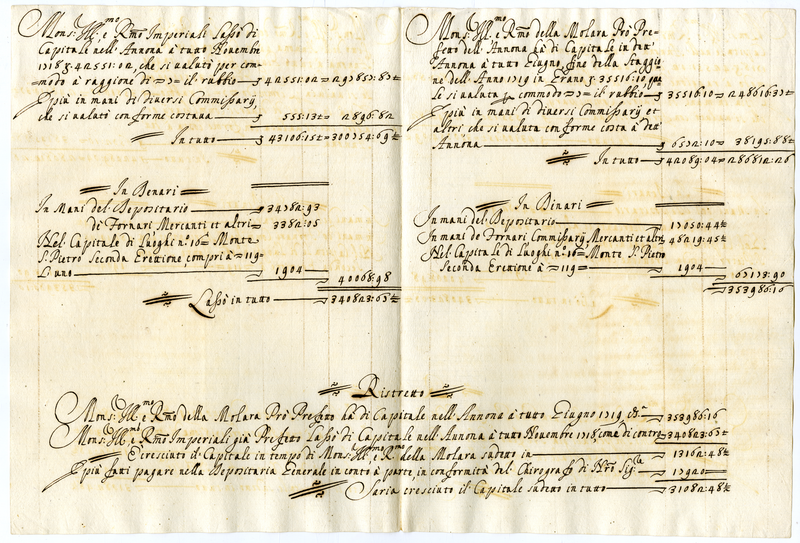 Mons: Ill.mo e R.mo Imperiali Lassò di
Capitale nell'Annona à tutto Novembre
1718 42551:02, che si valuta per com-
modo à raggione di 7 il rubbio 42551:02 297857:87
E più in mani di diversi Commissarij,
che si valuta conforme costava 555:13 2896:82
In tutto 43106:15 300754:69
In Denari
In Mani del Depositario 34782:93
di Fornari Mercanti et altri 3382:05
Nel Capitale di Luoghi n.o 16 Monte
S. Pietro Seconda Erettione, compri à 119
L'uno 1904 40068:98
Lassò in tutto 340823:67
Mons: Ill.mo e R.mo della Molara Pro Pre-
fetto dell'Annona hà di Capitale in det.a
Annona à tutto Giugno, fine della Staggio
ne dell'Anno 1719 in Grano 35516:10 qua
le si valuta p commodo 7 il rubbio 35516:10 248616:37
E più in mani di diversi Commissarij et
altri, che si valuta conforme costa à det.a
Annona 6572:10 38195:88
In tutto 42089:04 286812:26
In Dinari
In mani del Depositario 17050:44
In mani de Fornari Commissarij Mercanti et altri 48219:45
Nel Capitale di Luoghi n.o 16 Monte S. Pietro
Seconda Erettione à 119 1904 67173:90
353986:16
Ristretto
Mons: Ill.mo e R.mo della Molara Pro Prefetto hà di Capitale nell'Annona à tutto Giugno 1719 353986:16
Mons: Ill.mo e R.mo Imperiali già Prefetto Lassò di Capitale nell'Annona à tutto Novembre 1718, come di contro 340823:67
È cresciuto il Capitale in tempo di Mons: Ill.mo e R.mo della Molara sudetto in 13162:48
E più fatti pagare nella Depositaria Generale in conto à parte, in conformità del Chirografo di N'ro Sig.re 17920
Saria cresciuto il Capitale sudetto in tutto 31082:48